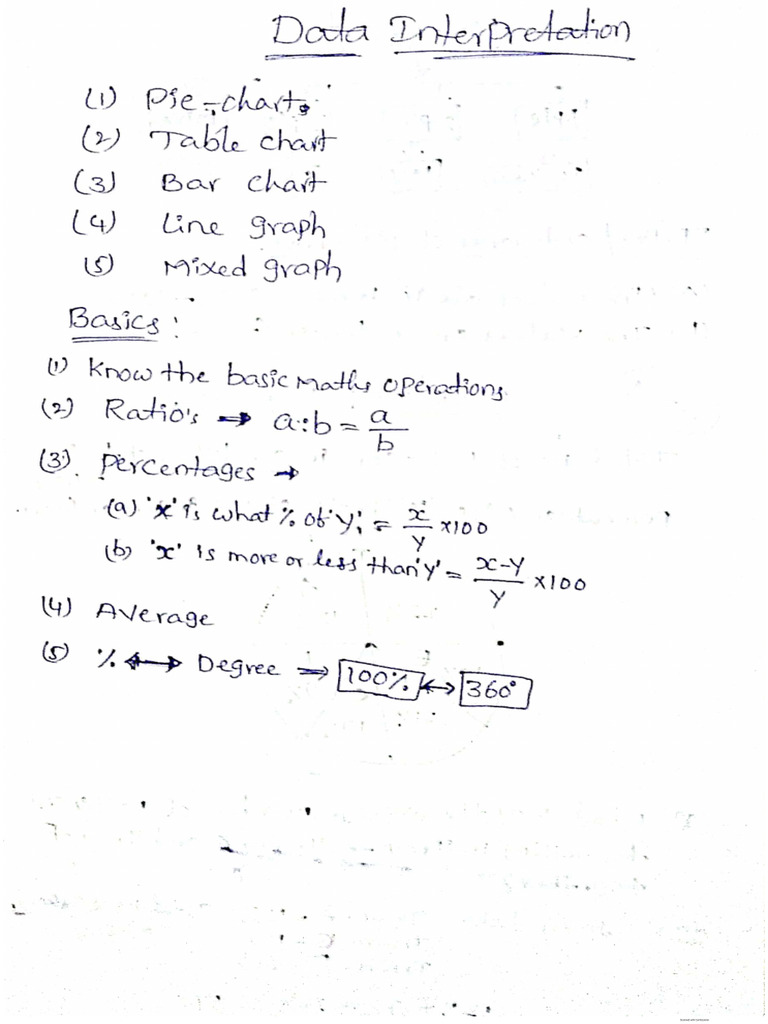 Data Interpretation
(1) Pie-chart.
(2) Table chart
(3) Bar chart
(4) Line graph
(5) Mixed graph
Basics:
(1) Know the basic maths operations
(2) Ratio's → a:b = a/b
(3) Percentages →
(a) 'x' is what % of 'y' = x/y ×100
(b) 'x' is more or less than 'y' = x-y/y ×100
(4) Average
(5) % ↔ Degree ⇒ 100% ↔ 360°